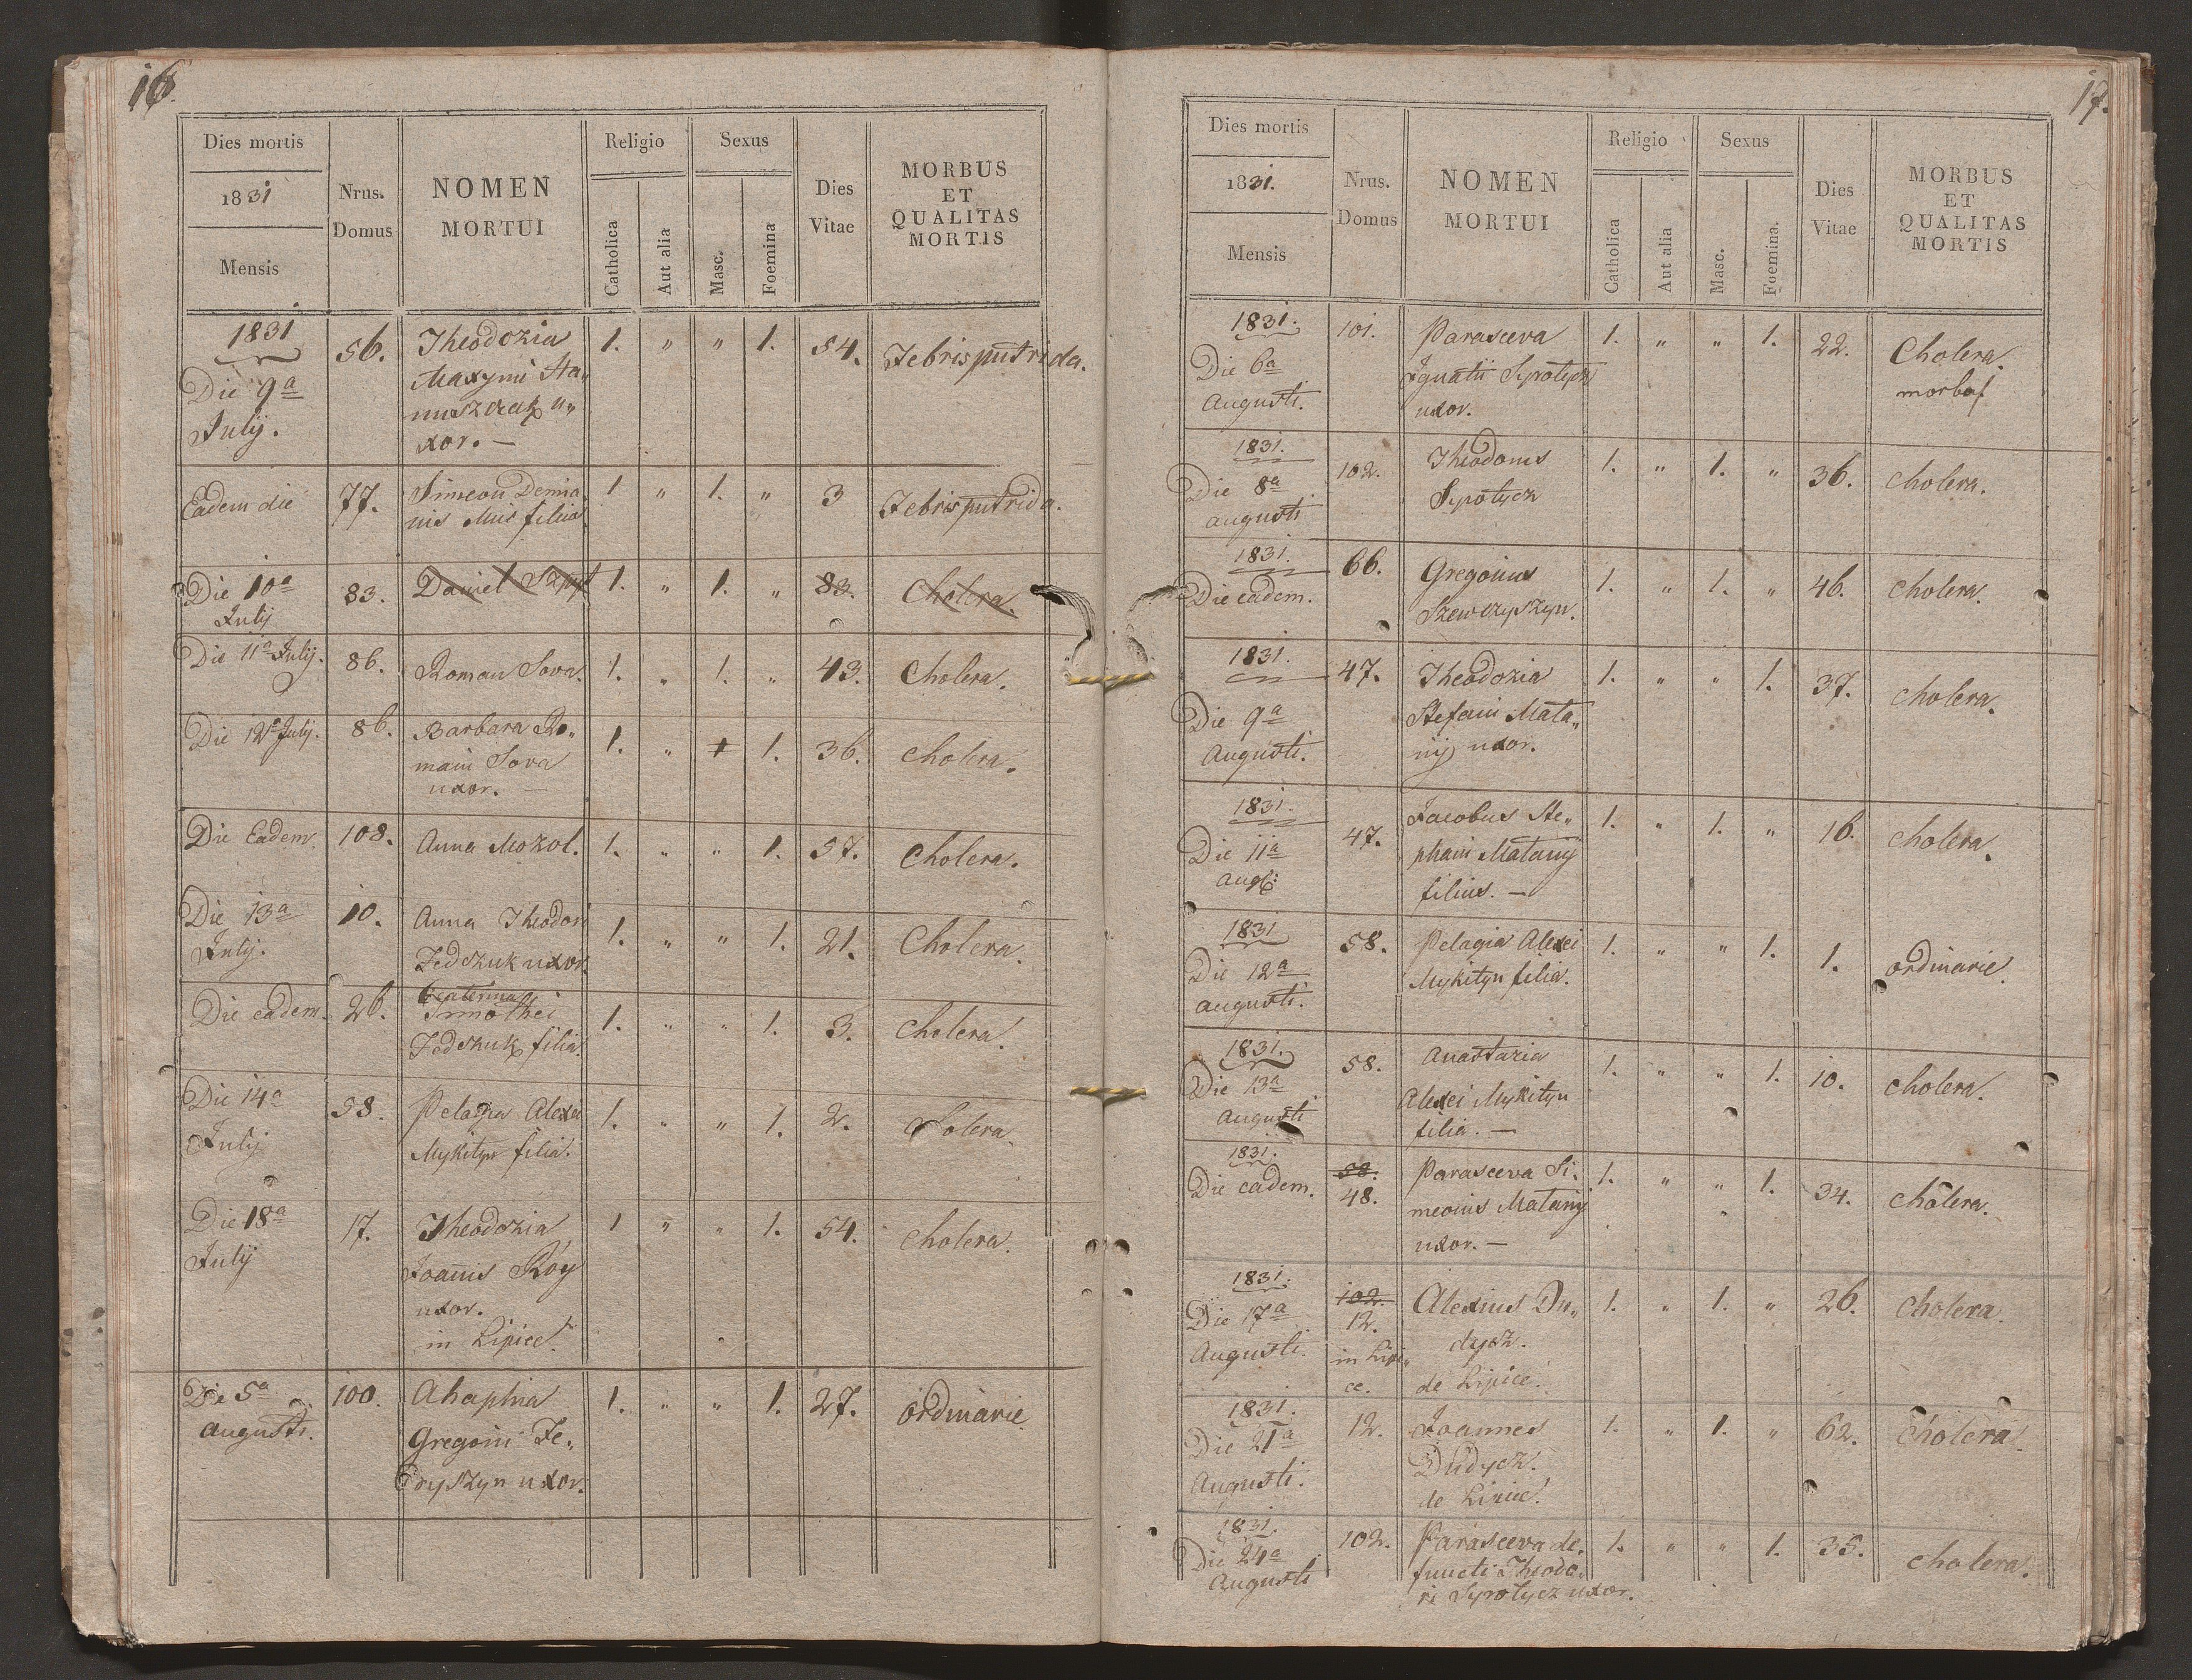 16.
Dies mortis
1831
Mensis
Nrus.
Domus
NOMEN
MORTUI
Religio
Catholica
Aut alia
Sexus
Masc.
Foemina
Dies
Vitae
MORBUS
ET
QUALITAS
MORTIS
1831
Die 9a
July.
56.
Theodozia
Maxymi Ha„
nuszczak u„
xor. —
1. " " 1. 54. Febris putrida.
Eadem die 77.
Simeon Demia
nis Mus filius
1 " 1. " 3 Febris putrida.
Die 10a
July
83. Daniel 1. " 1. " 83. Cholera.
Die 11a July. 86. Roman Sova. 1. " 1. " 43. Cholera.
Die 12a July. 86.
Barbara Ro„
mani Sova
uxor. —
1. " 1 1. 36. cholera.
Die Eadem. 108. Anna Mozol. 1. " " 1. 57. Cholera.
Die 13a
July.
10.
Anna Theodori
Fedczuk uxor.
1. " " 1. 21. Cholera.
Die eadem. 26.
Caterina
Timothei
Fedczuk filia.
1. " " 1. 3. Cholera.
Die 14a
July
58.
Pelagia Alexei
Mykityn filia.
1. " " 1. 2. Colera.
Die 18a
July
17.
Theodozia
Joannis Róy
uxor.
in Lipice.
1 " " 1. 54. cholera.
Die 5a
Augusti.
100.
Ahaphia
Gregorii Fe„
dryszyn uxor.
1. " " 1. 27. ordinarie
17.
Dies mortis
1831.
Mensis
Nrus.
Domus
NOMEN
MORTUI
Religio
Catholica
Aut alia
Sexus
Masc.
Foemina.
Dies
Vitae
MORBUS
ET
QUALITAS
MORTIS
1831.
Die 6a
Augusti.
101.
Parasceva
Ignatii Syrotycz
uxor.
1. " " 1. 22.
Cholera
morbus
1831.
Die 8a
augusti
102.
Theodorus
Syrotycz
1. " 1. " 36. cholera.
1831.
Die eadem.
66.
Gregorius
Szewczyszyn.
1. " 1. " 46. cholera.
1831.
Die 9a
Augusti.
47.
Theodozia
Stefani Mata„
nij uxor.
1. " " 1. 37. cholera.
1831.
Die 11a
Aug.
47.
Jacobus Ste„
phani Matanij
filius. —
1. " 1. " 16. cholera.
1831
Die 12a
augusti.
58.
Pelagia Alexei
Mykityn filia.
1. " " 1. 1. ordinarie
1831.
Die 13a
augusti
58.
Anastazia
Alexei Mykityn
filia. —
1. " " 1. 10. cholera.
1831.
Die eadem.
58.
48.
Parasceva Si„
meonis Matanij
uxor. —
1. " " 1. 34. cholera.
1831.
Die 17a
Augusti.
102.
12.
in Lipi„
ce.
Alexius Du„
dycz.
de Lipice.
1. " 1. " 26. cholera.
1831.
Die 21a
Augusti.
12.
Joannes
Dudycz.
de Lipice.
1. " 1. " 62. cholera.
1831.
Die 24a
Augusti
102.
Parasceva de„
functi Theodo„
ri Syrotycz uxor.
1. " " 1. 35. cholera.